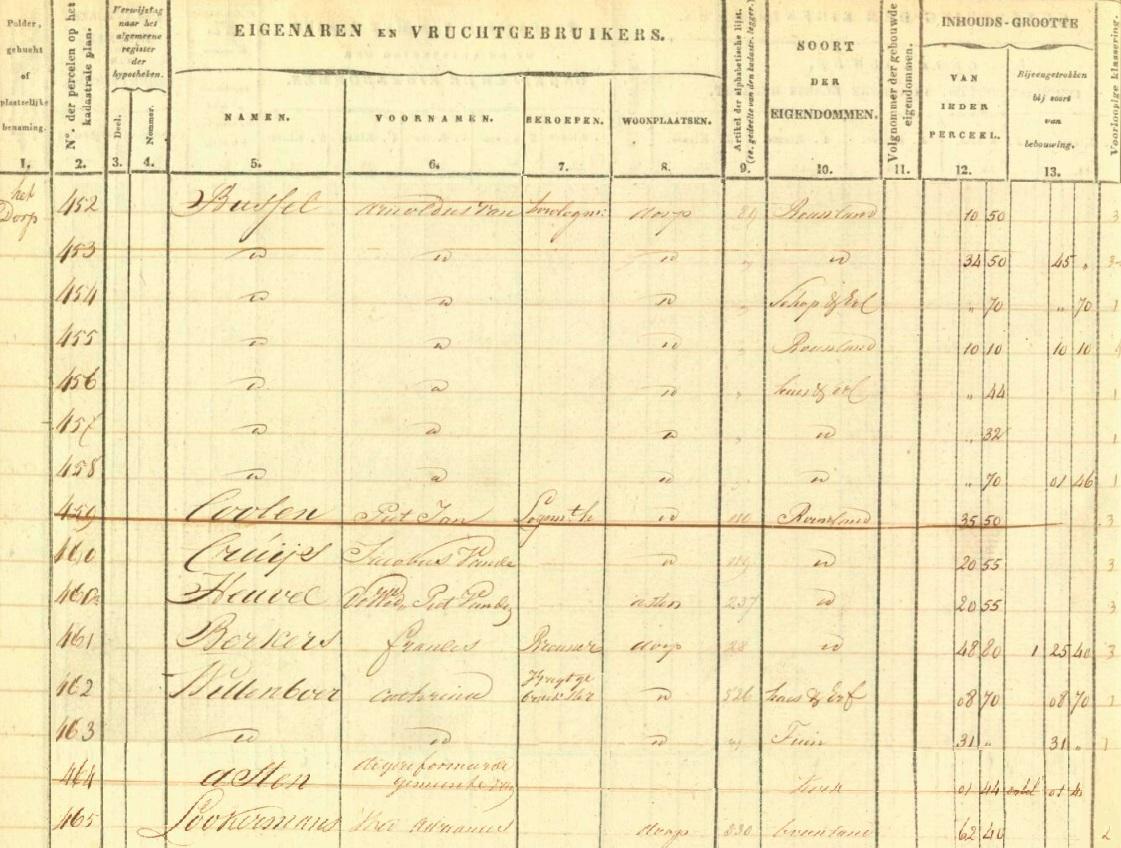 Polder, gehucht of plaatselijke benaming.
N°. der percelen op het kadastrale plan.
Verwijzing naar het algemeene register der hypotheken.
Deel.
Nommer.
EIGENAREN EN VRUCHTGEBRUIKERS.
NAMEN.
VOORNAMEN.
BEROEPEN.
WOONPLAATSEN.
Artikel der alphabetische lijst.
SOORT DER EIGENDOMMEN.
Volgnommer der gebouwde eigendommen.
INHOUDS-GROOTTE
VAN IEDER PERCEEL.
Bijeengetrokken bij soort van bebouwing.
Voorloopige klassering.
1. 2. 3. 4. 5. 6. 7. 8. 9. 10. 11. 12. 13.
het Dorp 452 Bussel Arnoldus van dorp 89 Bouwland 10 50 3
453 id id id " id 34 50 45 " 3
454 id id id " Schop & Erf " 70 " 70 1
455 id id id " Bouwland 10 10 10 10
456 id id id " huis & erf " 44 1
457 id id id " id " 32 1
458 id id id id " 70 01 46 1
459 Coolen Piet Jan id 110 Bouwland 35 50 3
460 Cruijs Jacobus Vande id 119 id 20 55 3
460a Heuvel Piet Vanden asten 237 id 20 55 3
461 Berkers Francis Brouwer dorp 28 id 48 80 1 25 40 3
462 Wellenboer Catharina Vrugtgebruikster id 526 huis & Erf 08 70 08 70 1
463 id id id " Tuin 31 " 31 " 1
464 asten de gereformeerde gemeente van kerk 01 44
465 Lookermans dorp 330 bouwland 62 40 2